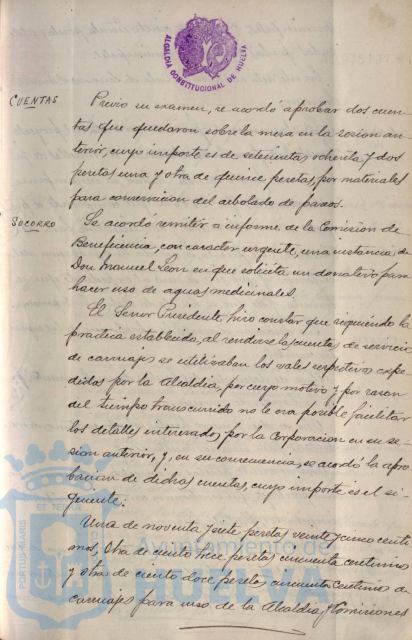 ALCALDIA CONSTITUCIONAL DE HUELVA
CUENTAS
Previo su examen, se acordó aprobar dos cuen-
tas que quedaron sobre la mesa en la sesion an-
terior, cuyo importe es de setecientas ochenta y dos
pesetas una y otra de quince pesetas, por materiales
para conservacion del arbolado de paseos.
SOCORRO
Se acordó remitir a informe de la Comision de
Beneficencia, con caracter urgente, una instancia de
Don Manuel Leon en que solicita un donativo para
hacer uso de aguas medicinales.
El Señor Presidente hizo constar que siguiendo la
practica establecida, al rendirse las cuentas de servicio
de carruajes se inutilizaban los vales respectivos expe-
didos por la Alcaldia, por cuyo motivo y por razon
del tiempo transcurrido no le era posible facilitar
los detalles interesados por la Corporacion en su se-
sion anterior, y, en su consecuencia, se acordó la apro-
bacion de dichas cuentas, cuyo importe es el si-
guiente:
Una de noventa y siete pesetas veinte y cinco centi-
mos, otra de ciento trece pesetas cincuenta centimos
y otra de ciento doce pesetas cincuenta centimos de
carruajes para uso de la Alcaldia y Comisiones
PORTUS MARIS
ET TERRÆ
Ayuntamiento de
HUELVA